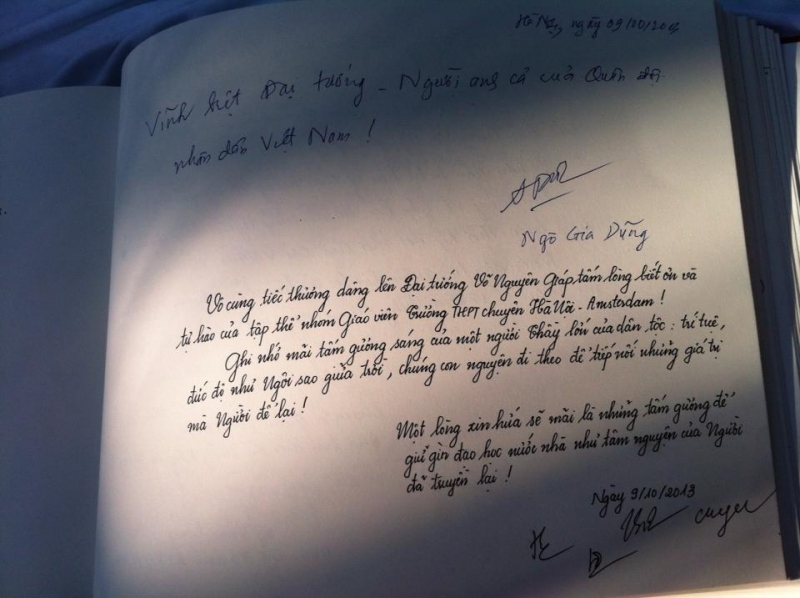 Hà Nội, ngày 09/10/2013
Vĩnh biệt Đại tướng - Người anh cả của Quân đội
nhân dân Việt Nam !
Ngô Gia Dũng
Vô cùng tiếc thương dâng lên Đại tướng Võ Nguyên Giáp tấm lòng biết ơn và
tự hào của tập thể nhóm Giáo viên Trường THPT chuyên Hà Nội - Amsterdam !
Ghi nhớ mãi tấm gương sáng của một người Thầy lớn của dân tộc : trí tuệ,
đức độ như Ngôi sao giữa trời, chúng con nguyện đi theo để tiếp nối những giá trị
mà Người để lại !
Một lòng xin hứa sẽ mãi là những tấm gương để
giữ gìn đạo học nước nhà như tâm nguyện của Người
đã truyền lại !
Ngày 9/10/2013